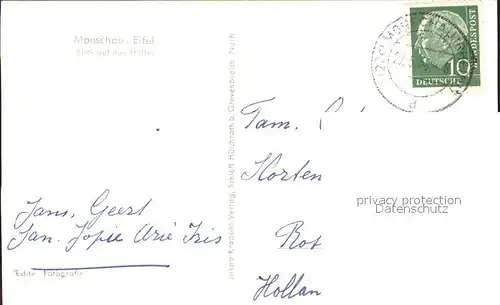 Monschau - Eifel
Blick auf den Haller
MONSCHAU
10
DEUTSCHE
BUNDESPOST
d
Fam.
Korten
privacy protection
Datenschutz
Rot
Hollan
Jans, Geert
Jan. Jopie Arie Iris
Echte Fotografie
Josef Krapohl-Verlag, Schloß Hülchrath b. Grevenbroich